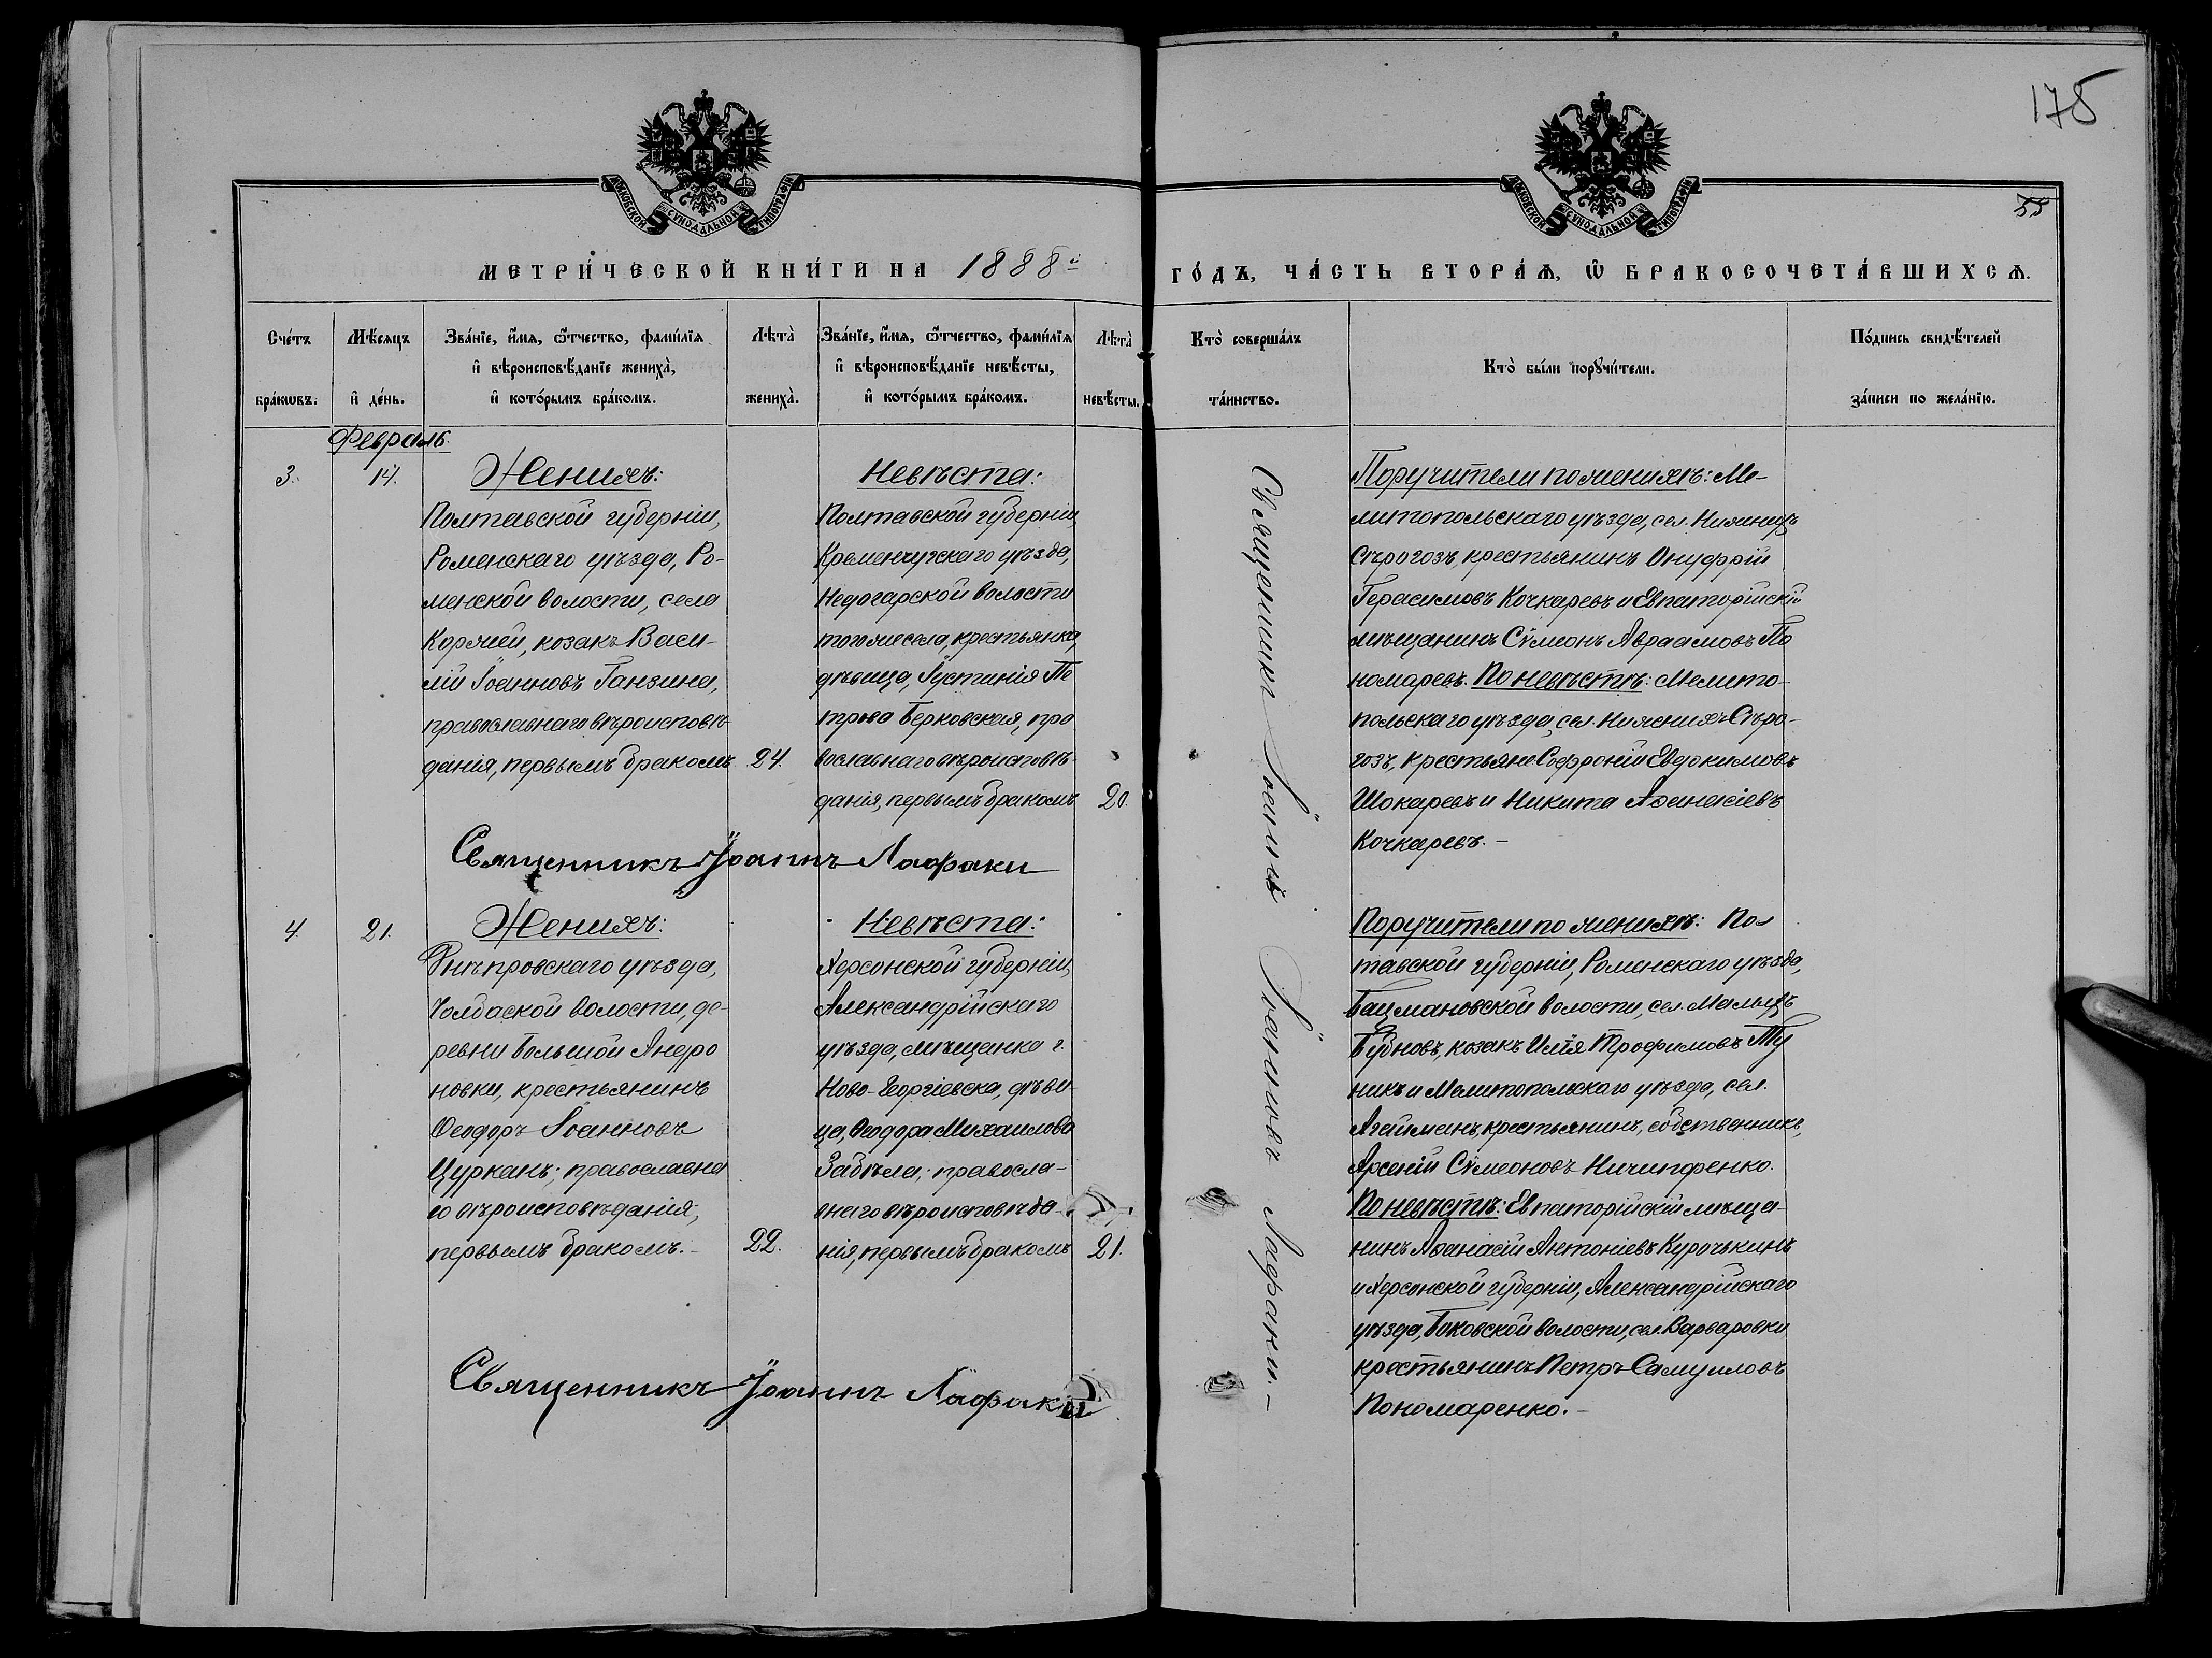 178
55
МОСКОВСКОЙ СУНОДАЛЬНОЙ ТИПОГРАФІИ
МОСКОВСКОЙ СУНОДАЛЬНОЙ ТИПОГРАФІИ
МЕТРИ́ЧЕСКОЙ КНИ́ГИ НА 1888й
ГО́ДЪ, ЧА́СТЬ ВТОРА́Ѧ, Ѿ БРАКОСОЧЕТА́ВШИХСѦ.
Сче́тъ бра́кѡвъ.
Мѣ́сяцъ и҆ де́нь.
Зва́нїе, и҆́мѧ, ѻ҆́тчество, фами́лїѧ
и҆ вѣроисповѣ́данїе жениха̀,
и҆ кото́рымъ бра́комъ.
Лѣта̀ жениха̀.
Зва́нїе, и҆́мѧ, ѻ҆́тчество, фами́лїѧ
и҆ вѣроисповѣ́данїе невѣ́сты,
и҆ кото́рымъ бра́комъ.
Лѣта̀ невѣ́сты.
Кто̀ соверша́лъ та́инство.
Кто̀ бы́ли порꙋчи́тели.
По́дпись свидѣ́телей за́писи по жела́нїю.
Февраль.
3.
14.
Женихъ:
Полтавской губерніи,
Роменскаго уѣзда, Ро-
менской волости, села
Коржей, козакъ Васи-
лій Іоанновъ Ганзина,
православнаго вѣроисповѣ-
данія, первымъ бракомъ
24.
Невѣста:
Полтавской губерніи,
Кременчугскаго уѣзда,
Недогарской волости
тогоже села, крестьянка,
дѣвица, Іустинія Пе
трова Берковская, пра
вославнаго вѣроисповѣ-
данія, первымъ бракомъ
20.
Священникъ Іоаннъ Лафаки
Священникъ Іоаннъ Іоанновъ Лафаки.-
Поручители по женихѣ: Ме-
литопольскаго уѣзда, сел. Нижнихъ
Сѣрогозъ, крестьянинъ Онуфрій
Герасимовъ Кочкаревъ и Евпаторійскій
мѣщанинъ Сѵмеонъ Авраамовъ По
номаревъ. По невѣстѣ: Мелито-
польскаго уѣзда, сел. Нижнихъ Сѣро-
гозъ, крестьяне Софроній Евдокимовъ
Шокаревъ и Никита Аѳанасіевъ
Кочкаревъ.-
4.
21.
Женихъ:
Днѣпровскаго уѣзда,
Чолбаской волости, де-
ревни Большой Андро
новки, крестьянинъ
Ѳеодоръ Іоанновъ
Цурканъ; православна
го вѣроисповѣданія,
первымъ бракомъ.-
22.
Невѣста:
Херсонской губерніи,
Александрійскаго
уѣзда, мѣщанка г.
Ново-Георгіевска, дѣви
ца, Ѳеодора Михаилова
Забѣла; правосла-
внаго вѣроисповѣда-
нія, первымъ бракомъ
21.
Священникъ Іоаннъ Лафаки
Поручители по женихѣ: Пол
тавской губерніи, Роменскаго уѣзда,
Бацмановской волости, сел. Малыхъ
Бубновъ, козакъ Илія Трофимовъ Ту
никъ и Мелитопольскаго уѣзда, сел.
Агайманъ, крестьянинъ, собственникъ,
Арсеній Сѵмеоновъ Ничипоренко.
По невѣстѣ: Евпаторійскій мѣща-
нинъ Аѳанасій Антоніевъ Курочькинъ
и Херсонской губерніи, Александрійскаго
уѣзда, Боковской волости, сел. Варваровки
крестьянинъ Петръ Самуиловъ
Пономаренко.-